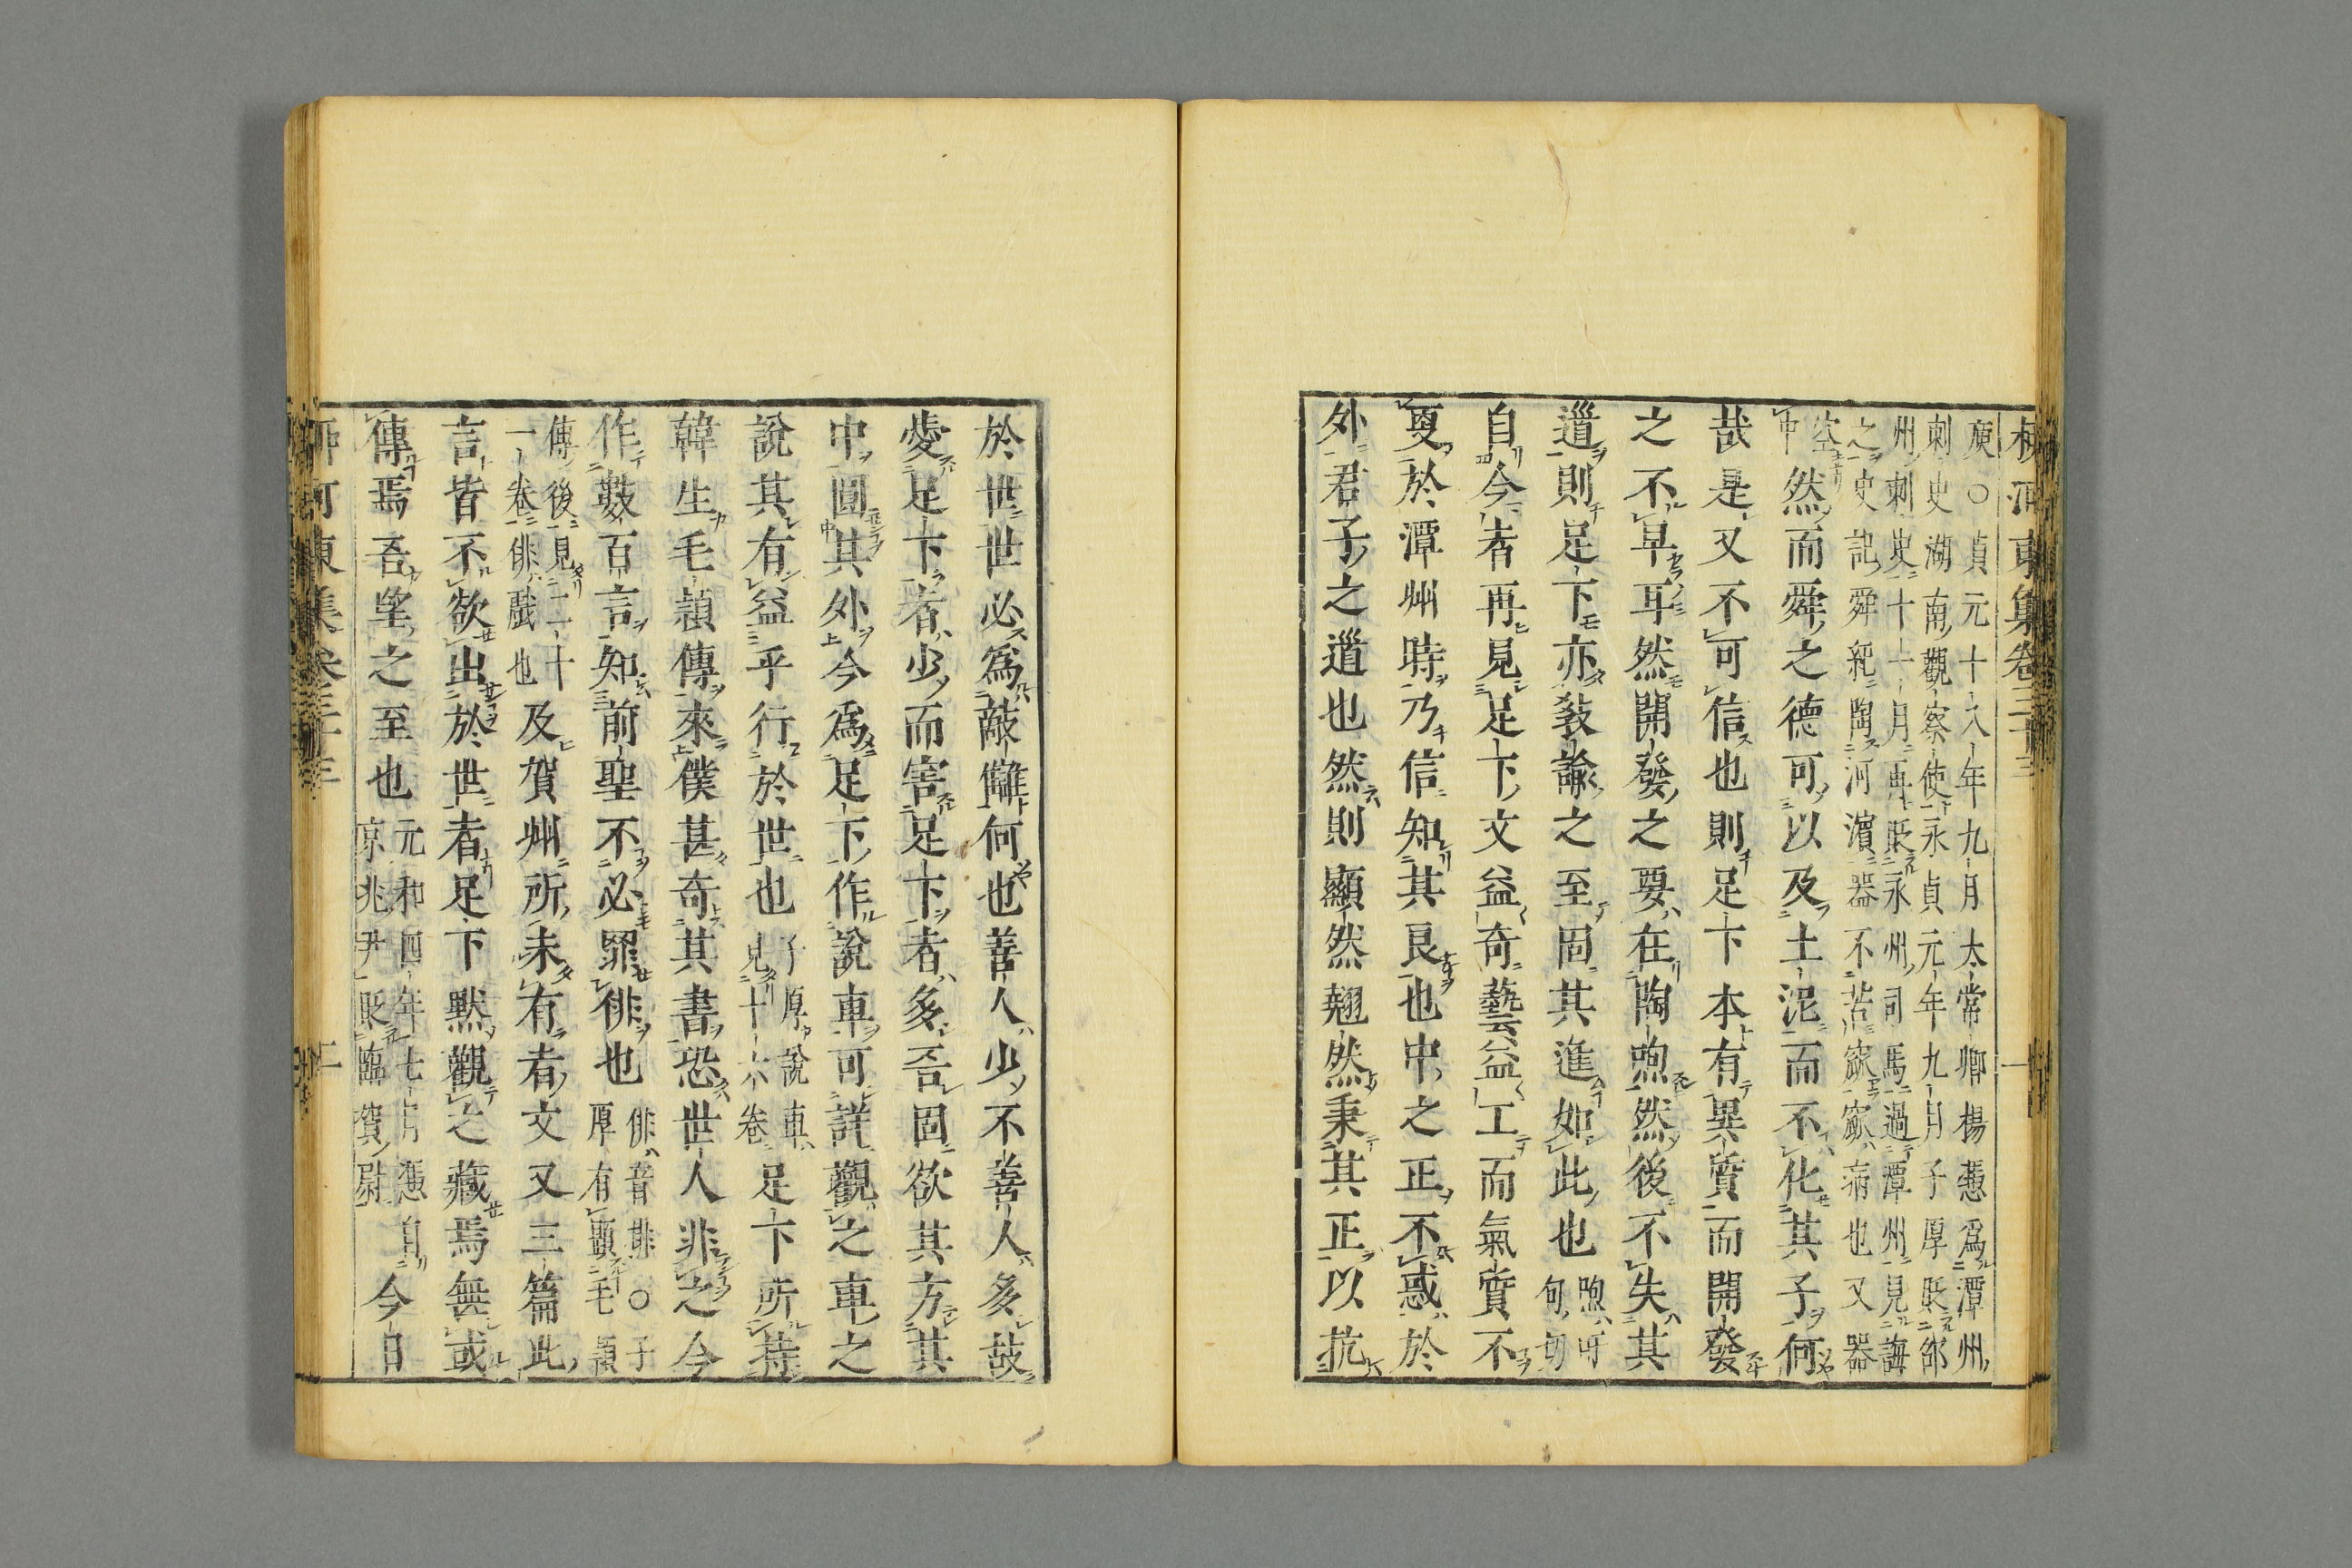 柳河東集卷三十三
一
庾○貞元十八年九月太常卿楊憑爲潭州
刺史湖南觀察使永貞元年九月子厚貶邵
州刺史十一月再貶永州司馬過潭州見誨
之史記舜紀陶河濱器不苦窳窳病也又器
空中
然而舜之德可以及土泥而不化其子何
哉是又不可信也則足下本有異質而開發
之不早耳然開發之要在陶煦然後不失其
道則足下亦敎諭之至固其進如此也煦吁句切
自今者再見足下文益奇藝益工而氣質不
更於潭州時乃信知其良也中之正不惑於
外君子之道也然則顯然翹然秉其正以抗
於世世必爲敵讎何也善人少不善人多故
愛足下者少而害足下者多吾固欲其方其
中圓其外今爲足下作說車可詳觀之車之
說其有益乎行於世也子厚說車見十六卷足下所持
韓生毛穎傳來僕甚奇其書恐世人非之今
作數百言知前聖不必罪俳也俳音排○子厚有題毛穎
傳後見二十一卷俳戲也及賀州所未有者文又三篇此
言皆不欲出於世者足下默觀之藏焉無或
傳焉吾望之至也元和四年七月憑自京兆尹貶臨賀尉今日
柳河東集卷三十三